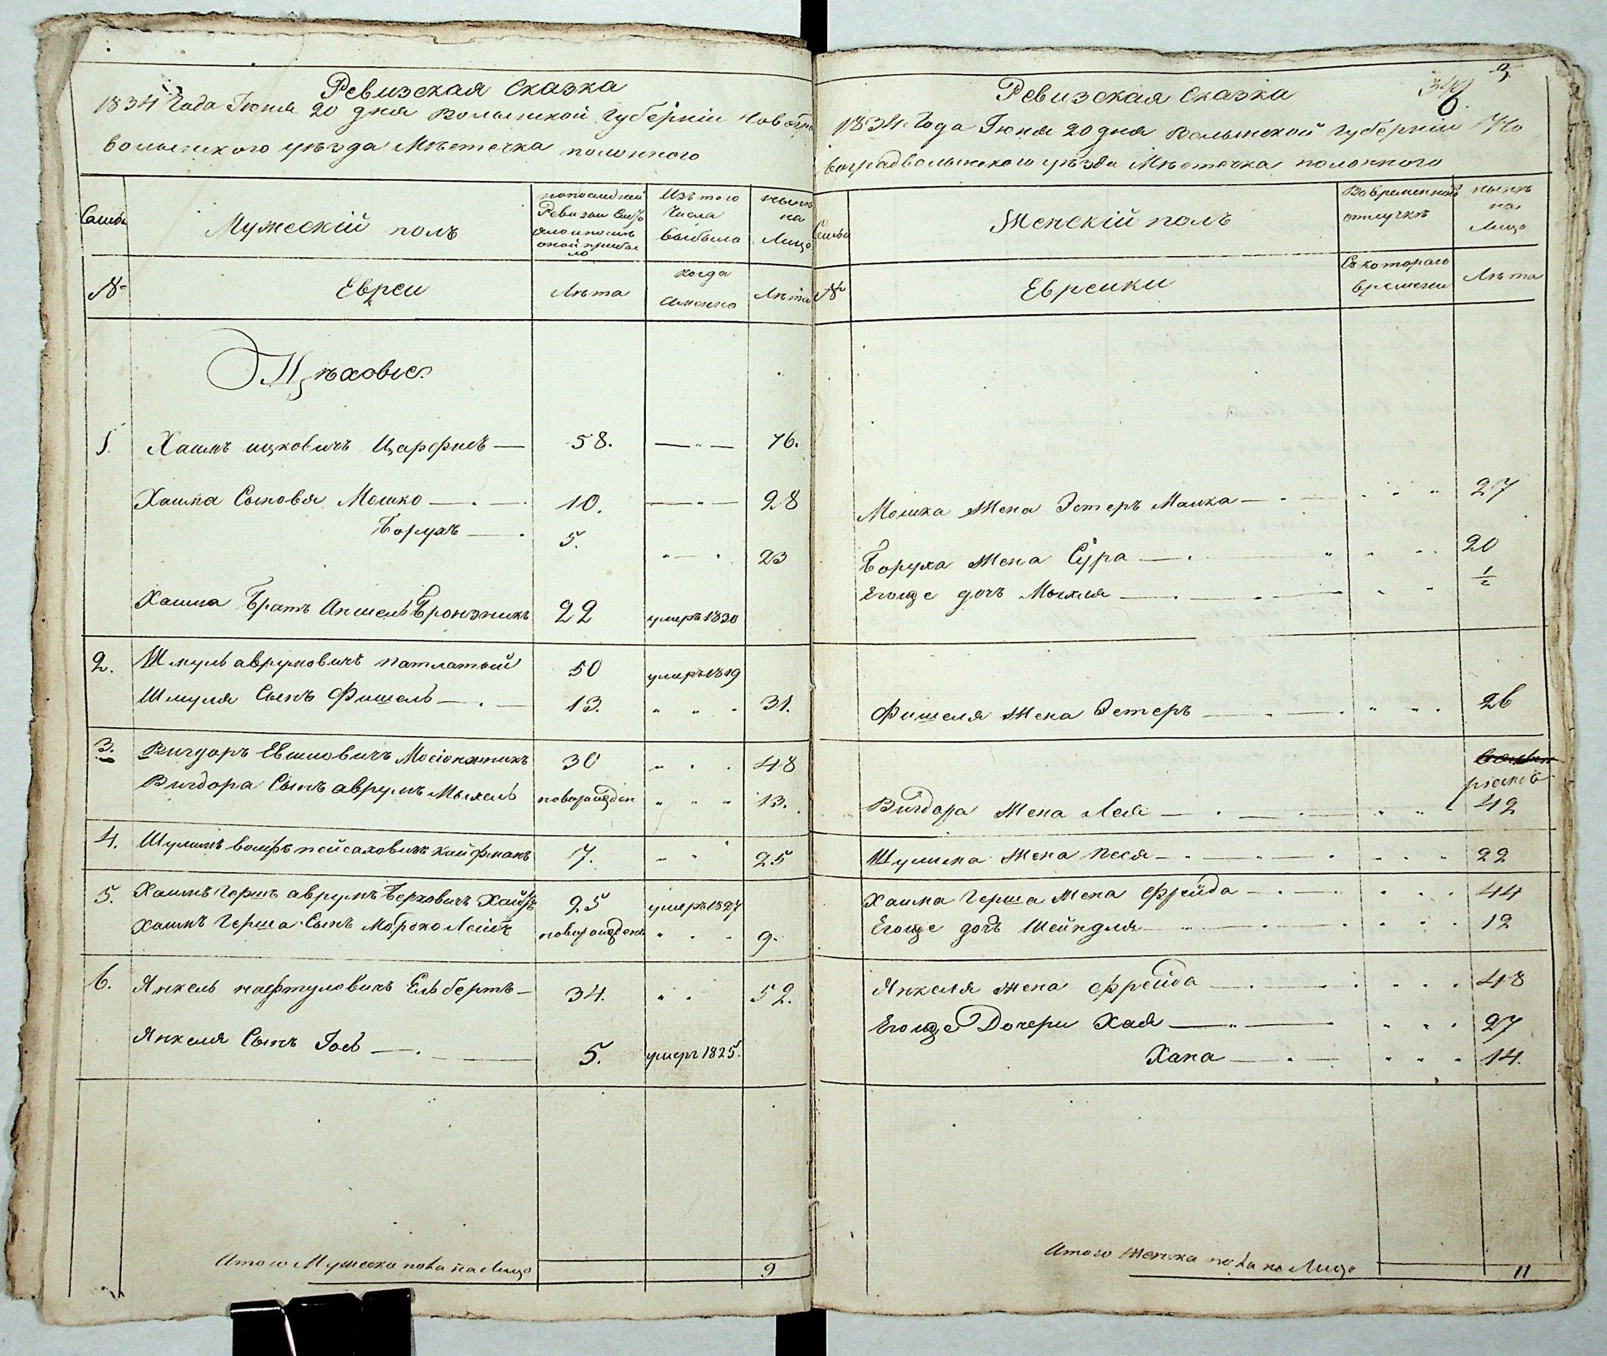 Ревизская сказка
1834 Года Іюня 20 дня волынской губерніи Новогра
волынского уѣзда Мѣстечка полонного
Семьи
Мужескій полъ
по последней Ревизіи состояло и после оной прибыло
Изъ того числа выбыло
ныне на Лицо
№
Евреи
Лѣта
когда именно
Лѣта
Цѣховые
1. Хаимъ ицковичъ — 58. — " — 76.
Хаима Сыновя Мошко — 10. — " — 28
Борухъ — 5. " — " 23
Хаима Братъ Аншель 22 умеръ 1830
2. Шмуль аврумовичъ патлатый 50 умеръ 1819
Шмуля Сынъ Фишель — 13. " " " 31.
3. Вигдоръ 30 " " " 48
Вигдора Сынъ аврумъ Мыхель новорожден " " " 13.
4. Шулимъ волфъ пейсаховичъ 7. " " 25
5. Хаимъ Гершъ аврумъ Берковичъ 25 умеръ 1827
Хаимъ Герша Сынъ новорожденъ " " " 9.
6. Янкель нафтуловичъ Ельбертъ — 34. " " 52.
Янкеля Сынъ Іосъ — 5. умеръ 1825.
Итого Мужеска пола на Лицо 9
5
Ревизская Сказка
1834 Года Іюня 20 дня Волынской губерніи Но
воградволынского уѣзда Мѣстечка полонного
Семьи
Женскій полъ
Во временной отлучкѣ
нынѣ на Лицо
№
Еврейки
Съ которого времени
Лѣта
Мошка Жена Эстеръ Малка — " " " 27
Боруха Жена Сура — " " " 20
Егоже дочъ — " " 1/2
Фишеля Жена Эстеръ — " " " 26
Вигдора Жена Лея — " " " 42
Шулима Жена Песя — " " " 22
Хаима Герша Жена Фрейда — " " " 44
Егоже дочъ Шейндля — " " " 12
Янкеля Жена Фрейда — " " " 48
Егоже Дочери Хая — " " " 27
Хана — " " " 14.
Итого Женска пола на Лицо 11